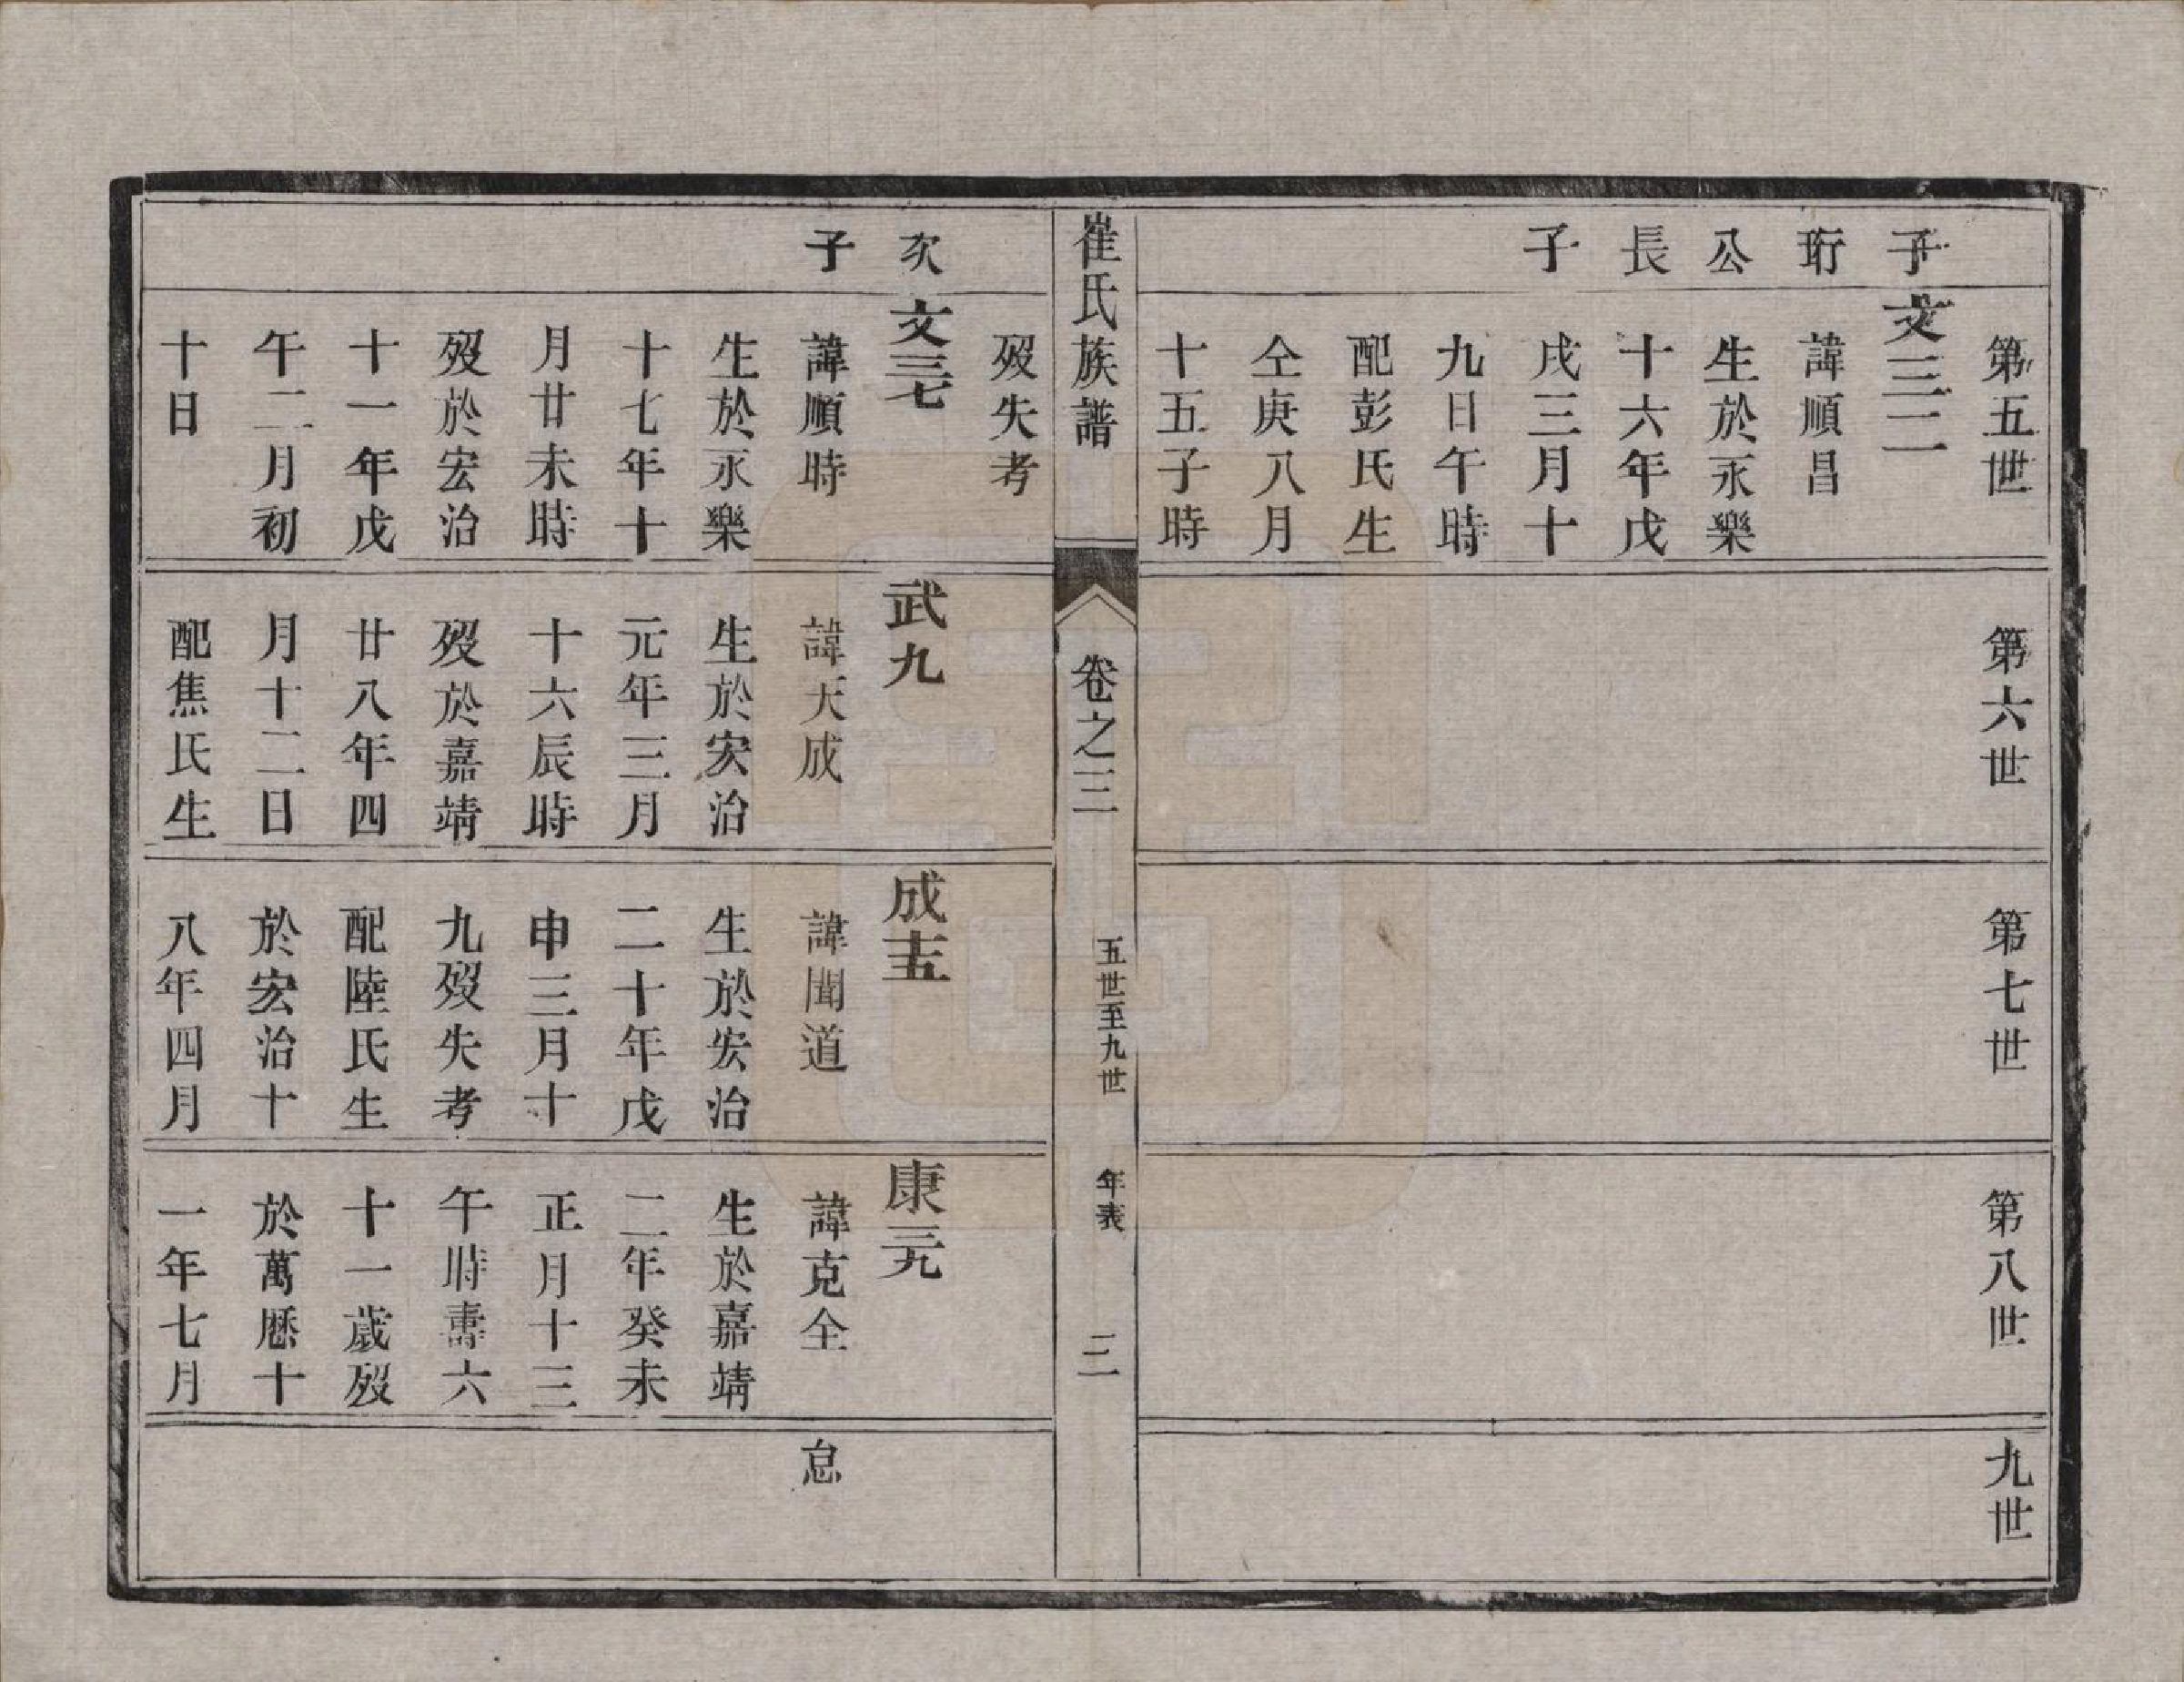 第五世
第六世
第七世
第八世
九世
子
珩
公
長
子
文三二
諱順昌
生於永樂
十六年戊
戌三月十
九日午時
配彭氏生
仝庚八月
十五子時
崔氏族譜
卷之三
五世至九世
年表
二
歿失考
次
子
文三七
諱順時
生於永樂
十七年十
月廿未時
歿於宏治
十一年戊
午二月初
十日
武九
諱天成
生於宏治
元年三月
十六辰時
歿於嘉靖
廿八年四
月十二日
配焦氏生
成十五
諱聞道
生於宏治
二十年戊
申三月十
九歿失考
配陸氏生
於宏治十
八年四月
康三九
諱克全
生於嘉靖
二年癸未
正月十三
午時壽六
十一歲歿
於萬歷十
一年七月
怠